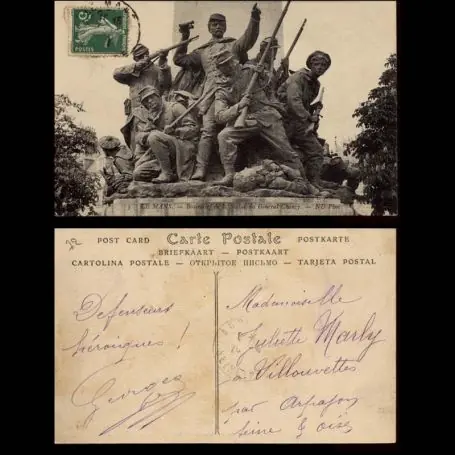 LE MANS. — Bas-relief de la Statue du Général Chanzy. — ND Phot.
POST CARD Carte Postale POSTKARTE
BRIEFKAART — POSTKAART
CARTOLINA POSTALE — ОТКРЫТОЕ ПИСЬМО — TARJETA POSTAL
Defenseurs
héroïques !
Georges
Mademoiselle
Juliette Marly
à Villouvettes
par Arpajon
Seine & Oise